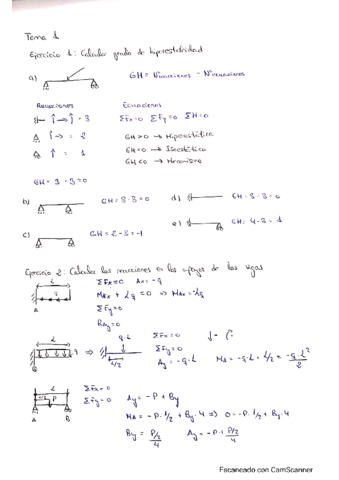 Tema 1
Ejercicio 1: Calcular grado de hiperestaticidad
a) GH = Nºreacciones - Nºecuaciones
Reacciones Ecuaciones
↑ → = 3 ΣFx=0 ΣFy=0 ΣM=0
↑ → = 2 GH>0 → Hiperestático
↑ = 1 GH=0 → Isostático
GH<0 → Mecanismo
GH = 3 - 3 = 0
b) GH = 3 - 3 = 0 d) GH = 3 - 3 = 0
c) GH = 2 - 3 = -1 e) GH = 4 - 3 = 1
Ejercicio 2: Calcular las reacciones en los apoyos de las vigas
L ΣFx=0 Ax = -q
q MAx + Lq = 0 ⇒ MAx = Lq
ΣFy=0
A
q ⇒ q·L ΣFx=0
ΣFy=0
L/2 Ay = q·L MA = -q·L·L/2 = -q·L²/2
ΣFx=0
L/2 P ΣFy=0 Ay = -P + By
MA = -P·L/2 + By·4 ⇒ 0 = -P·L/2 + By·4
A B
By = P/2/4 Ay = -P + P/2/4
Escaneado con CamScanner